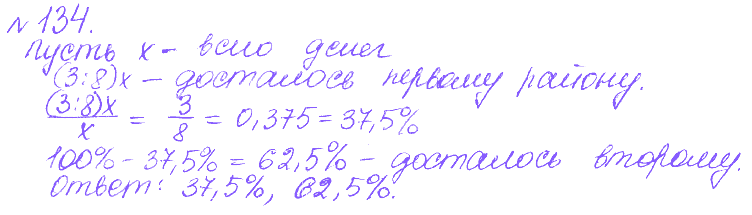 № 134.
Пусть x - всего денег
(3:8)x — досталось первому району.
(3:8)x / x = 3/8 = 0,375 = 37,5%
100% - 37,5% = 62,5% - досталось второму.
Ответ: 37,5%, 62,5%.